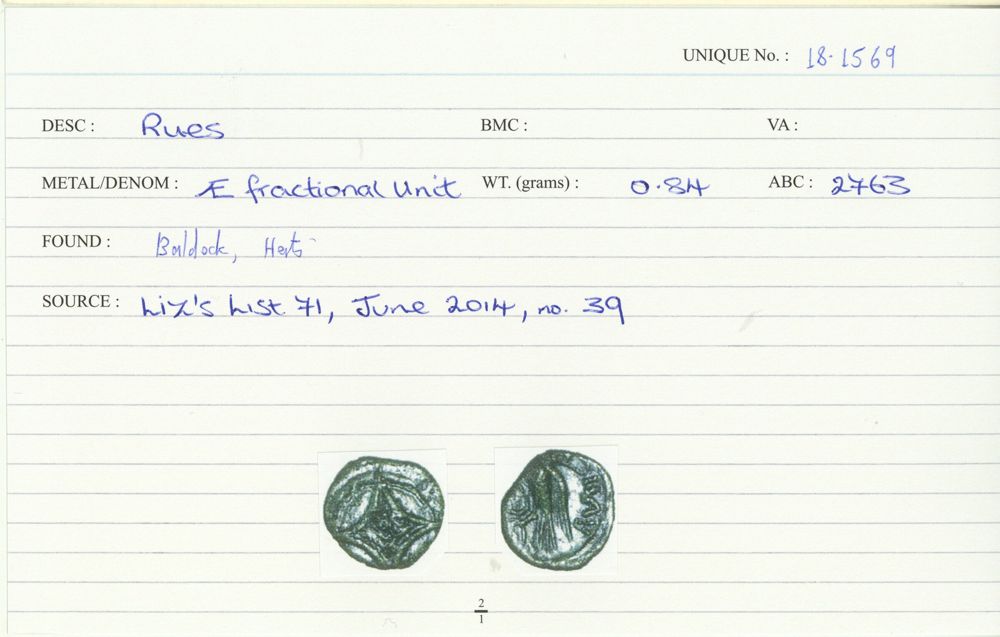 UNIQUE No. : 18-1569
DESC : Rues BMC : VA :
METAL/DENOM : Æ fractional Unit WT. (grams) : 0.84 ABC : 2763
FOUND : Baldock, Herts
SOURCE : Liz's List 71, June 2014, no. 39
2
1